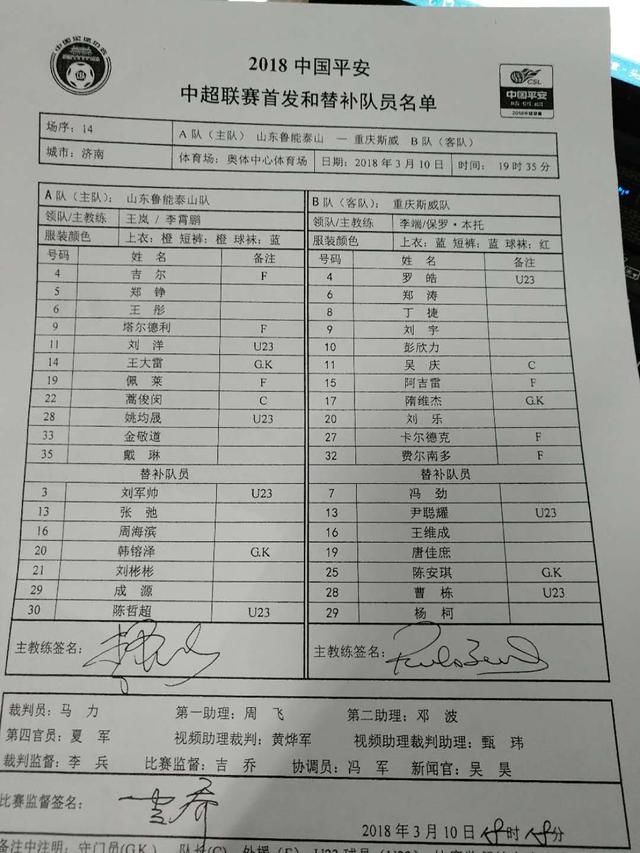 2018 中国平安
中超联赛首发和替补队员名单
CSL
中国平安
2018中超联赛
场序：14 A 队（主队） 山东鲁能泰山 — 重庆斯威 B 队（客队）
城市：济南 体育场：奥体中心体育场 日期：2018 年 3 月 10 日 时间： 19 时 35 分
A 队（主队）： 山东鲁能泰山队 B 队（客队）： 重庆斯威队
领队/主教练 王岚 / 李霄鹏 领队/主教练 李端/保罗·本托
服装颜色 上衣：橙 短裤：橙 球袜：蓝 服装颜色 上衣：蓝 短裤：蓝 球袜：红
号码 姓 名 备注 号码 姓 名 备注
4 吉 尔 F 4 罗 皓 U23
5 郑 铮 6 郑 涛
6 王 彤 8 丁 捷
9 塔尔德利 F 9 刘 宇
11 刘 洋 U23 10 彭欣力
14 王大雷 G.K 11 吴 庆 C
19 佩 莱 F 15 阿吉雷 F
22 蒿俊闵 C 17 隋维杰 G.K
28 姚均晟 U23 20 刘 乐
33 金敬道 27 卡尔德克 F
35 戴 琳 32 费尔南多 F
替补队员 替补队员
3 刘军帅 U23 7 冯 劲
13 张 弛 13 尹聪耀 U23
16 周海滨 16 王维成
20 韩镕泽 G.K 19 唐佳庶
21 刘彬彬 25 陈安琪 G.K
29 成 源 28 曹 栋 U23
30 陈哲超 U23 29 杨 柯
主教练签名： 主教练签名：
裁判员：马 力 第一助理：周 飞 第二助理：邓 波
第四官员：夏 军 视频助理裁判：黄烨军 视频助理裁判助理：甄 玮
裁判监督：李 兵 比赛监督：吉 乔 协调员：冯 军 新闻官：吴 昊
比赛监督签名： 吉乔
2018 年 3 月 10 日 时 分
备注中注明：守门员(G.K) 队长(C)